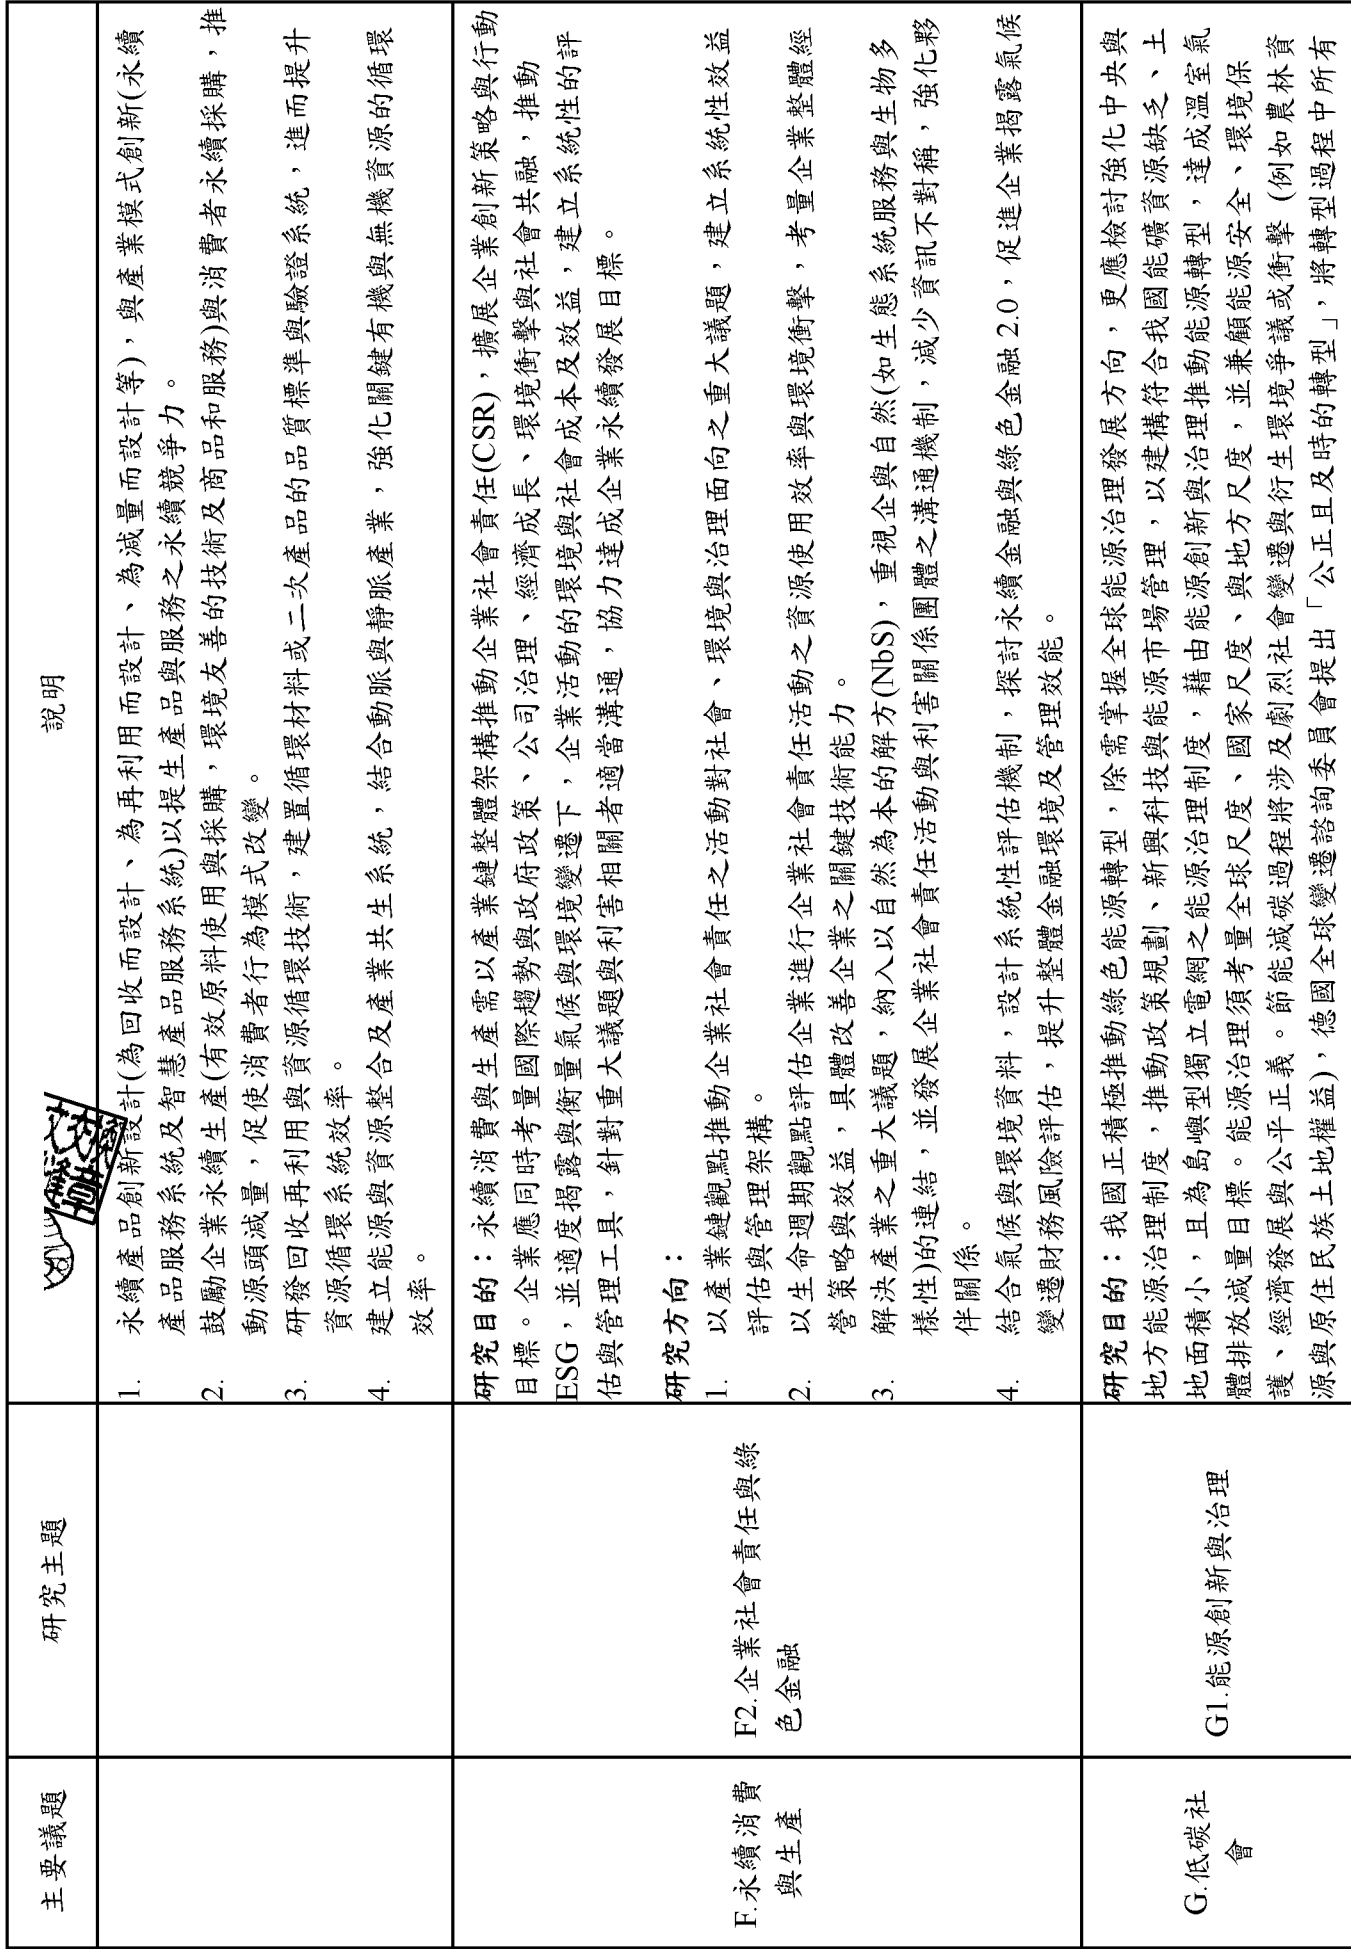 主要議題
研究主題
說明
1. 永續產品創新設計(為回收而設計、為再利用而設計、為減量而設計等)，與產業模式創新(永續
產品服務系統及智慧產品服務系統)以提生產品與服務之永續競爭力。
2. 鼓勵企業永續生產(有效原料使用與採購，環境友善的技術及商品和服務)與消費者永續採購，推
動源頭減量，促使消費者行為模式改變。
3. 研發回收再利用與資源循環技術，建置循環材料或二次產品的品質標準與驗證系統，進而提升
資源循環系統效率。
4. 建立能源與資源整合及產業共生系統，結合動脈與靜脈產業，強化關鍵有機與無機資源的循環
效率。
F.永續消費
與生產
F2.企業社會責任與綠
色金融
研究目的：永續消費與生產需以產業鏈整體架構推動企業社會責任(CSR)，擴展企業創新策略與行動
目標。企業應同時考量國際趨勢與政府政策、公司治理、經濟成長、環境衝擊與社會共融，推動
ESG，並適度揭露與衡量氣候與環境變遷下，企業活動的環境與社會成本及效益，建立系統性的評
估與管理工具，針對重大議題與利害相關者適當溝通，協力達成企業永續發展目標。
研究方向：
1. 以產業鏈觀點推動企業社會責任之活動對社會、環境與治理面向之重大議題，建立系統性效益
評估與管理架構。
2. 以生命週期觀點評估企業進行企業社會責任活動之資源使用效率與環境衝擊，考量企業整體經
營策略與效益，具體改善企業之關鍵技術能力。
3. 解決產業之重大議題，納入以自然為本的解方(NbS)，重視企與自然(如生態系統服務與生物多
樣性)的連結，並發展企業社會責任活動與利害關係團體之溝通機制，減少資訊不對稱，強化夥
伴關係。
4. 結合氣候與環境資料，設計系統性評估機制，探討永續金融與綠色金融2.0，促進企業揭露氣候
變遷財務風險評估，提升整體金融環境及管理效能。
G.低碳社
會
G1.能源創新與治理
研究目的：我國正積極推動綠色能源轉型，除需掌握全球能源治理發展方向，更應檢討強化中央與
地方能源治理制度，推動政策規劃、新興科技與能源市場管理，以建構符合我國能礦資源缺乏、土
地面積小，且為島嶼型獨立電網之能源治理制度，藉由能源創新與治理推動能源轉型，達成溫室氣
體排放減量目標。能源治理須考量全球尺度、國家尺度、與地方尺度，並兼顧能源安全、環境保
護、經濟發展與公平正義。節能減碳過程將涉及劇烈社會變遷與衍生環境爭議或衝擊 (例如農林資
源與原住民族土地權益)，德國全球變遷諮詢委員會提出「公正且及時的轉型」，將轉型過程中所有